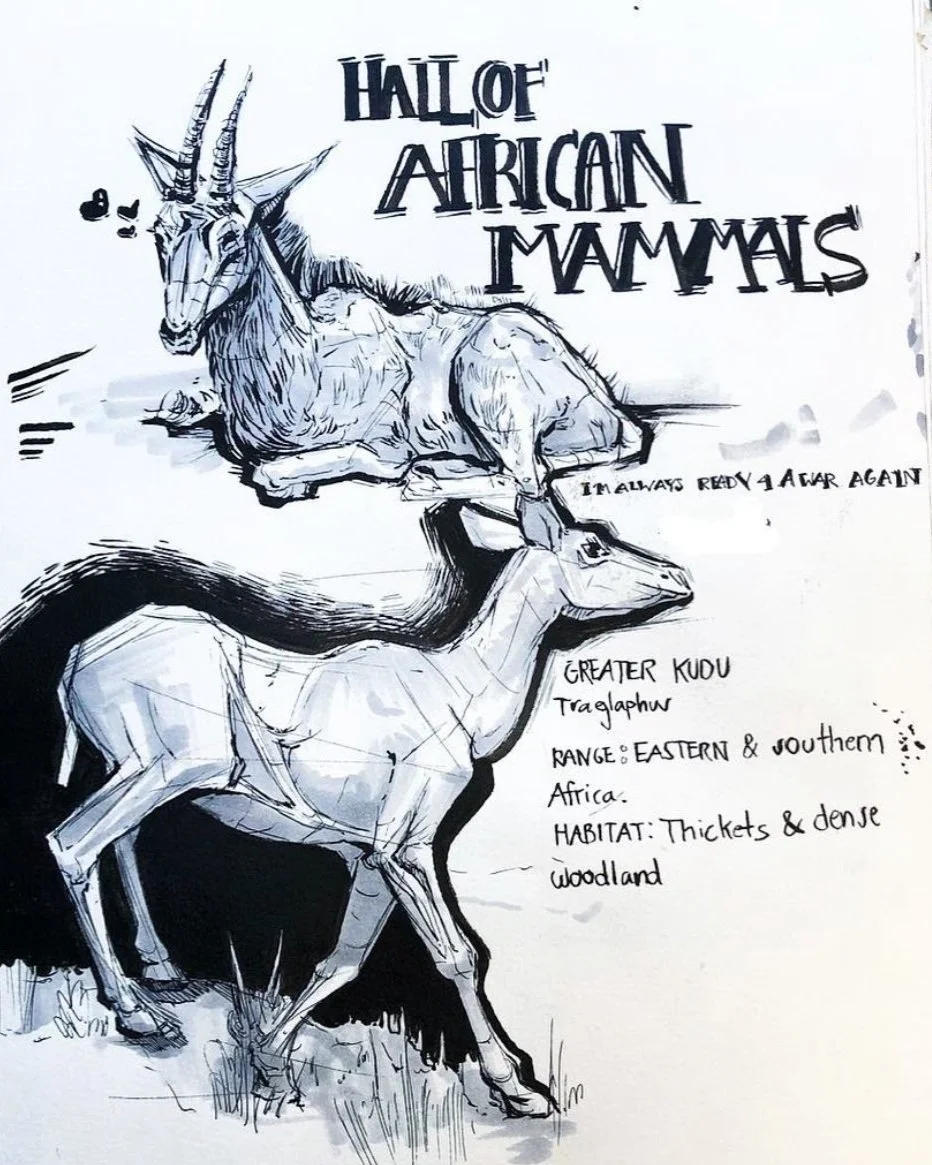 HALL OF
AFRICAN
MAMMALS
I'M ALWAYS READY 4 A WAR AGAIN
GREATER KUDU
Traglaphus
RANGE: EASTERN & southern
Africa.
HABITAT: Thickets & dense
woodland